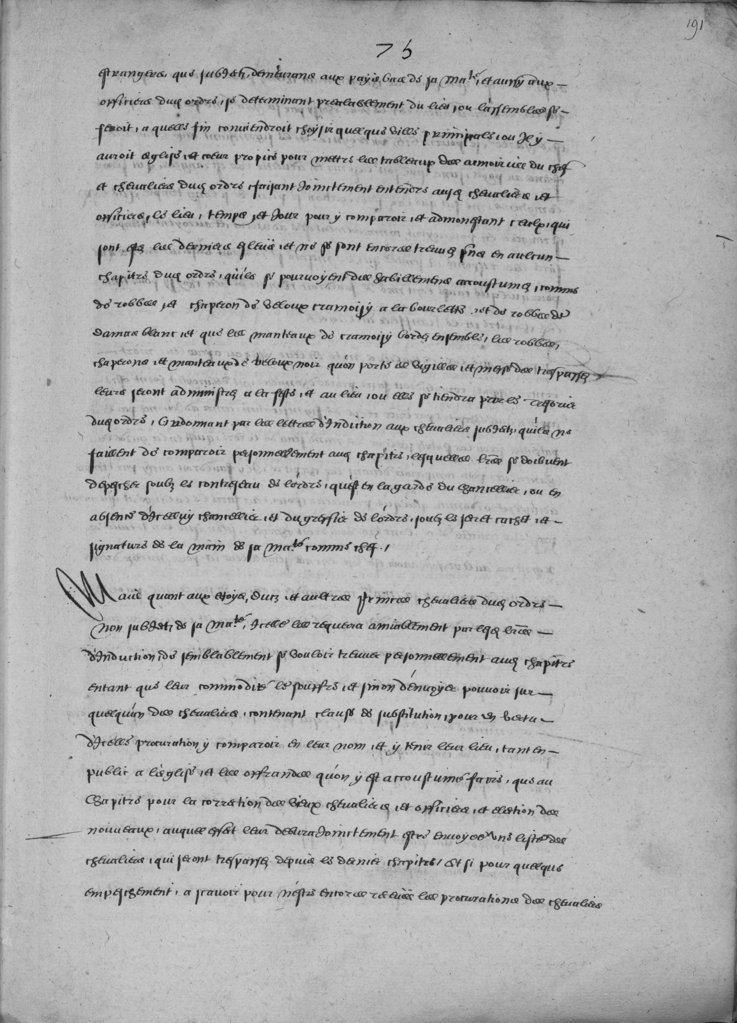 191
75
estrangers, que subiectz, demeurans aux pays bas de sa Ma.te, et aussy aux
officiers dud. ordre, se determinant prealablement du lieu, ou l'assemblee se
feroit, a quelle fin conviendroit choysir quelque ville principale, ou Il y
auroit eglise, et coeur propice pour mettre les tableaux des armoiries du chef
et chevaliers dud. ordre, faisant Joinctement entendre ausd. chevaliers, et
officiers, le lieu, temps, et Jour pour y comparoir, et admonestant ceulx, qui
sont estez les derniers esleuz, et ne se sont encores trouvez pñs en aulcun
chapitre dud. ordre, qu'ilz se pourvoyent des habillemens accoustumez, comme
de robbes, et chaperon de veloux cramoisy a la bourlette, et de robbes de
damas blanc, et que les manteaux de cramoisy bordez ensemble, les robbes,
chaperons, et manteaux de veloux noir, qu'on porte es vigilles et messes des trespassez
leurs seront administrez a la feste, et au lieu, ou elle se tiendra par le tresorier
dud. ordre, Ordonnant par les lettres d'Induction aux chevaliers subiectz, qu'ilz ne
faillent de comparoir personnellement aud. chapitre, lesquelles lres se doibvent
depescher soubz le contreseau de l'ordre, qu'est en la garde du chancellier, ou en
absence d'Icelluy chancellier, et du greffier de l'ordre, soubz le secret cachet, et
signature de la main de sa Ma.te comme chef /
Mais quant aux Roys, Ducz, et aultres princes chevaliers dud. ordre
non subiectz de sa Ma.te, Icelle les requerra amiablement par lesd. lres
d'Induction, de semblablement se vouloir trouver personnellement aud. chapitre
entant que leur commodité le souffre, et sinon d'envoyer pouvoir sur
quelqu'un des chevaliers, contenant clause de substitution, pour en vertu
d'Icelle procuration y comparoir en leur nom, et y tenir leur lieu, tant en
public a l'eglise, et les offrandes qu'on y est accoustumé faire, que au
Chapitre pour la correction des vieux chevaliers, et officiers, et election des
nouveaux, auquel effect leur debvra Joinctement estre envoyée une liste des
chevaliers, qui seront trespassez depuis le dernier chapitre / Et si pour quelque
empeschement, a scavoir pour n'estre encores les procurations des chevaliers